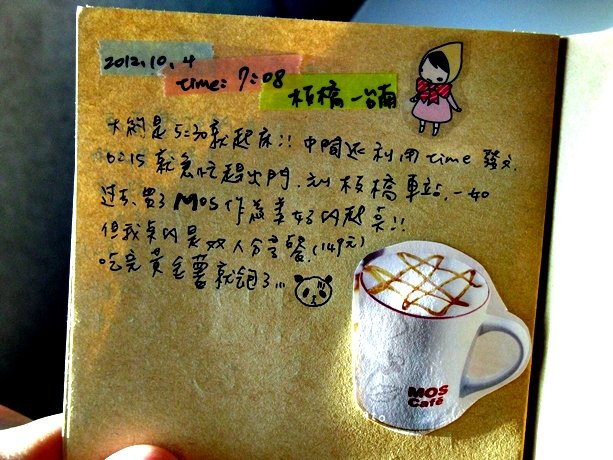 2012.10.4
time: 7:08
板橋→台南
大約是5:30就起床!! 中間還利用time 發文.
6:15 就急忙趕出門.到板橋車站.一切
過去.買了MOS作為美好的起点!!
但我点的是双人分享餐.(149元)
吃完黃金薯就飽了...
MOS
Café